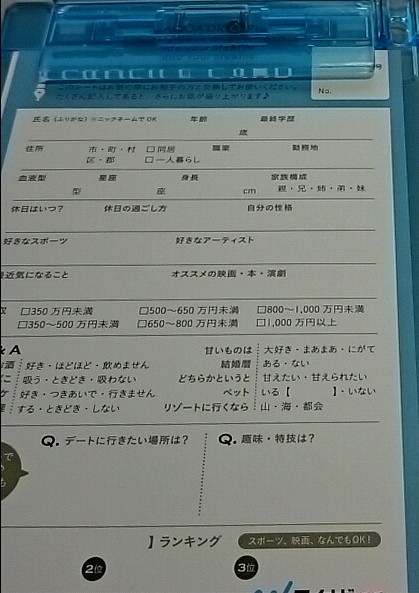 AQUA DROP
このシートはお話の際にお相手の方と交換してお使いください。
たくさん記入してあると、さらにお話が盛り上がります♪
号
No.
氏名(ふりがな)※ニックネームでOK 年齢 最終学歴
歳
住所 市・町・村 □同居 職業 勤務地
区・郡 □一人暮らし
血液型 星座 身長 家族構成
型 座 cm 親・兄・姉・弟・妹
休日はいつ? 休日の過ごし方 自分の性格
好きなスポーツ 好きなアーティスト
最近気になること オススメの映画・本・演劇
収 □350万円未満 □500〜650万円未満 □800〜1,000万円未満
□350〜500万円未満 □650〜800万円未満 □1,000万円以上
& A
お酒 好き・ほどほど・飲めません 甘いものは 大好き・まあまあ・にがて
吸う・ときどき・吸わない 結婚暦 ある・ない
好き・つきあいで・行きません どちらかというと 甘えたい・甘えられたい
する・ときどき・しない ペット いる【 】・いない
リゾートに行くなら 山・海・都会
Q. デートに行きたい場所は? Q. 趣味・特技は?
】ランキング スポーツ、映画、なんでもOK!
2位 3位